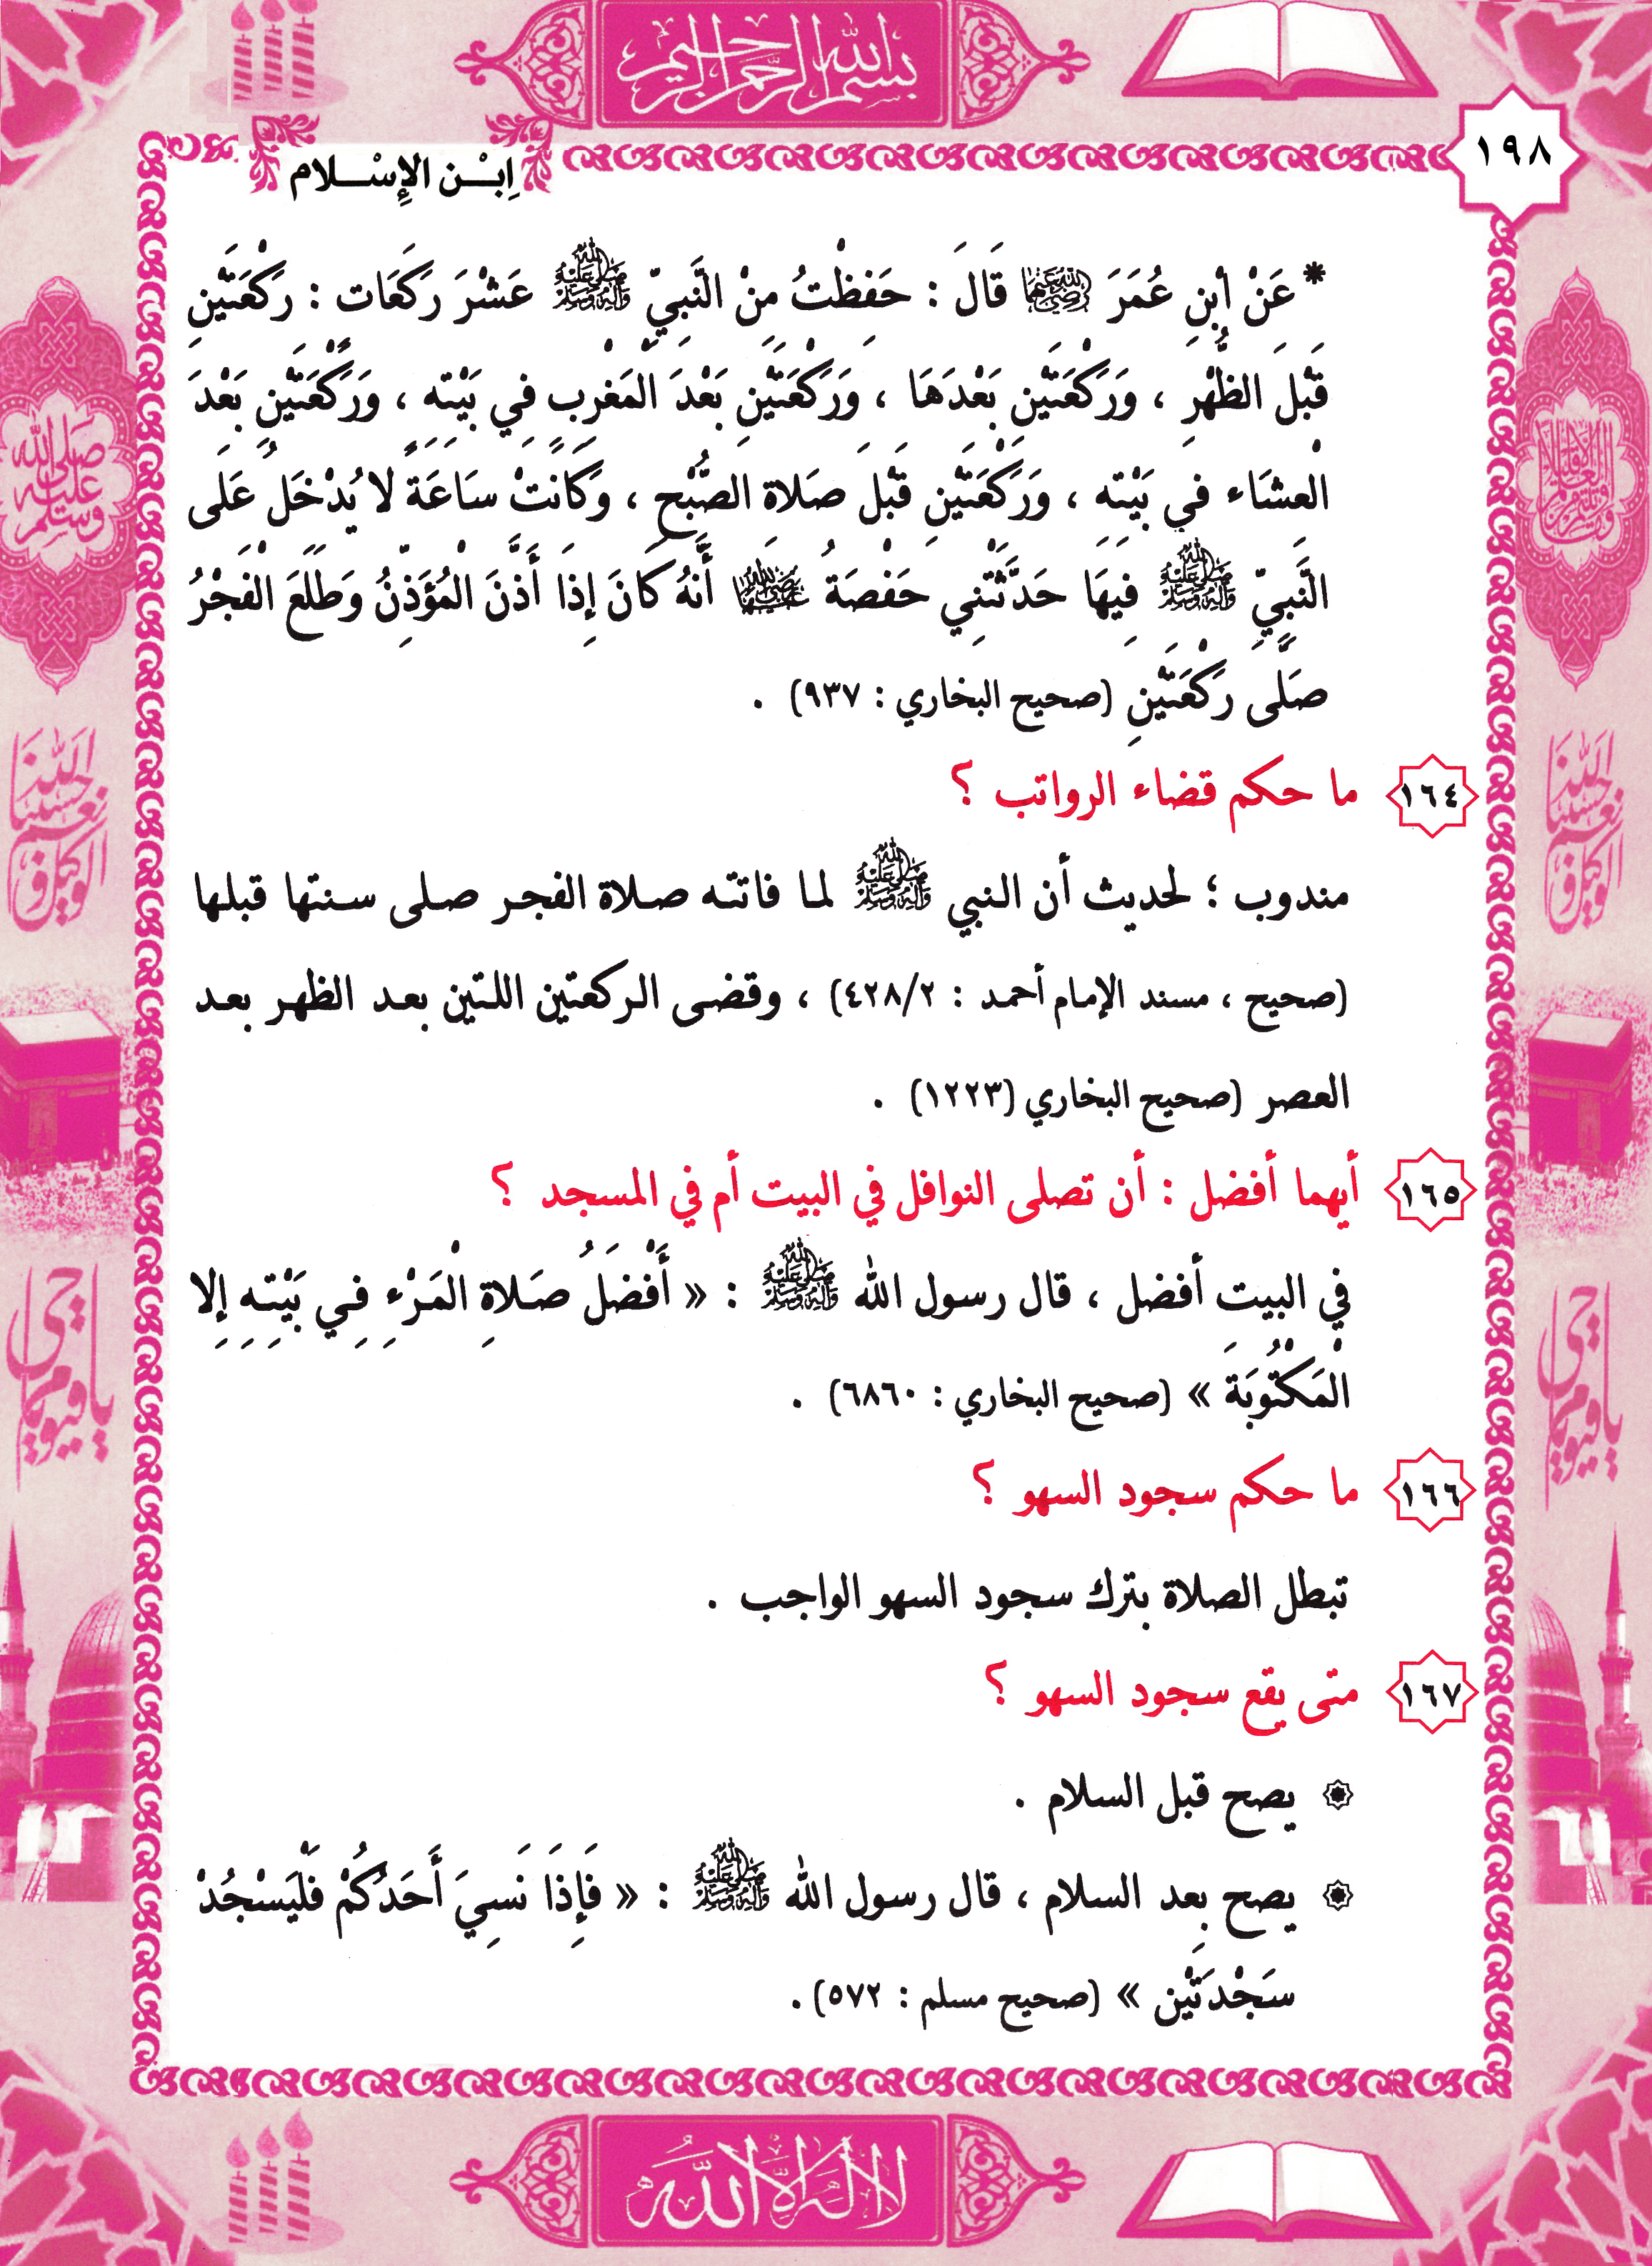 بسم الله الرحمن الرحيم
١٩٨
اِبْـن الإِسْـلام
* عَنْ ابْنِ عُمَرَ رضي الله عنهما قَالَ : حَفِظْتُ مِنْ النَّبِيِّ صلى الله عليه وآله وسلم عَشْرَ رَكَعَات : رَكْعَتَيْنِ
قَبْلَ الظُّهْرِ ، وَرَكْعَتَيْنِ بَعْدَهَا ، وَرَكْعَتَيْنِ بَعْدَ الْمَغْرِبِ فِي بَيْتِهِ ، وَرَكْعَتَيْنِ بَعْدَ
الْعِشَاءِ فِي بَيْتِهِ ، وَرَكْعَتَيْنِ قَبْلَ صَلاةِ الصُّبْحِ ، وَكَانَتْ سَاعَةً لا يُدْخَلُ عَلَى
النَّبِيِّ صلى الله عليه وآله وسلم فِيهَا حَدَّثَتْنِي حَفْصَةُ رضي الله عنها أَنَّهُ كَانَ إِذَا أَذَّنَ الْمُؤَذِّنُ وَطَلَعَ الْفَجْرُ
صَلَّى رَكْعَتَيْنِ (صحيح البخاري : ٩٣٧) .
١٦٤ ما حكم قضاء الرواتب ؟
مندوب ؛ لحديث أن النبي صلى الله عليه وآله وسلم لما فاتته صلاة الفجر صلى سنتها قبلها
(صحيح ، مسند الإمام أحمد : ٤٢٨/٢) ، وقضى الركعتين اللتين بعد الظهر بعد
العصر (صحيح البخاري (١٢٢٣) .
١٦٥ أيهما أفضل : أن تصلى النوافل في البيت أم في المسجد ؟
في البيت أفضل ، قال رسول الله صلى الله عليه وآله وسلم : « أَفْضَلُ صَلاةِ الْمَرْءِ فِي بَيْتِهِ إِلا
الْمَكْتُوبَةَ » (صحيح البخاري : ٦٨٦٠) .
١٦٦ ما حكم سجود السهو ؟
تبطل الصلاة بترك سجود السهو الواجب .
١٦٧ متى يقع سجود السهو ؟
يصح قبل السلام .
يصح بعد السلام ، قال رسول الله صلى الله عليه وآله وسلم : « فَإِذَا نَسِيَ أَحَدُكُمْ فَلْيَسْجُدْ
سَجْدَتَيْنِ » (صحيح مسلم : ٥٧٢) .
لا إله إلا الله
صلى الله عليه وسلم
حسبنا الله ونعم الوكيل
حسبنا الله ونعم الوكيل
يا حي يا قيوم
يا حي يا قيوم